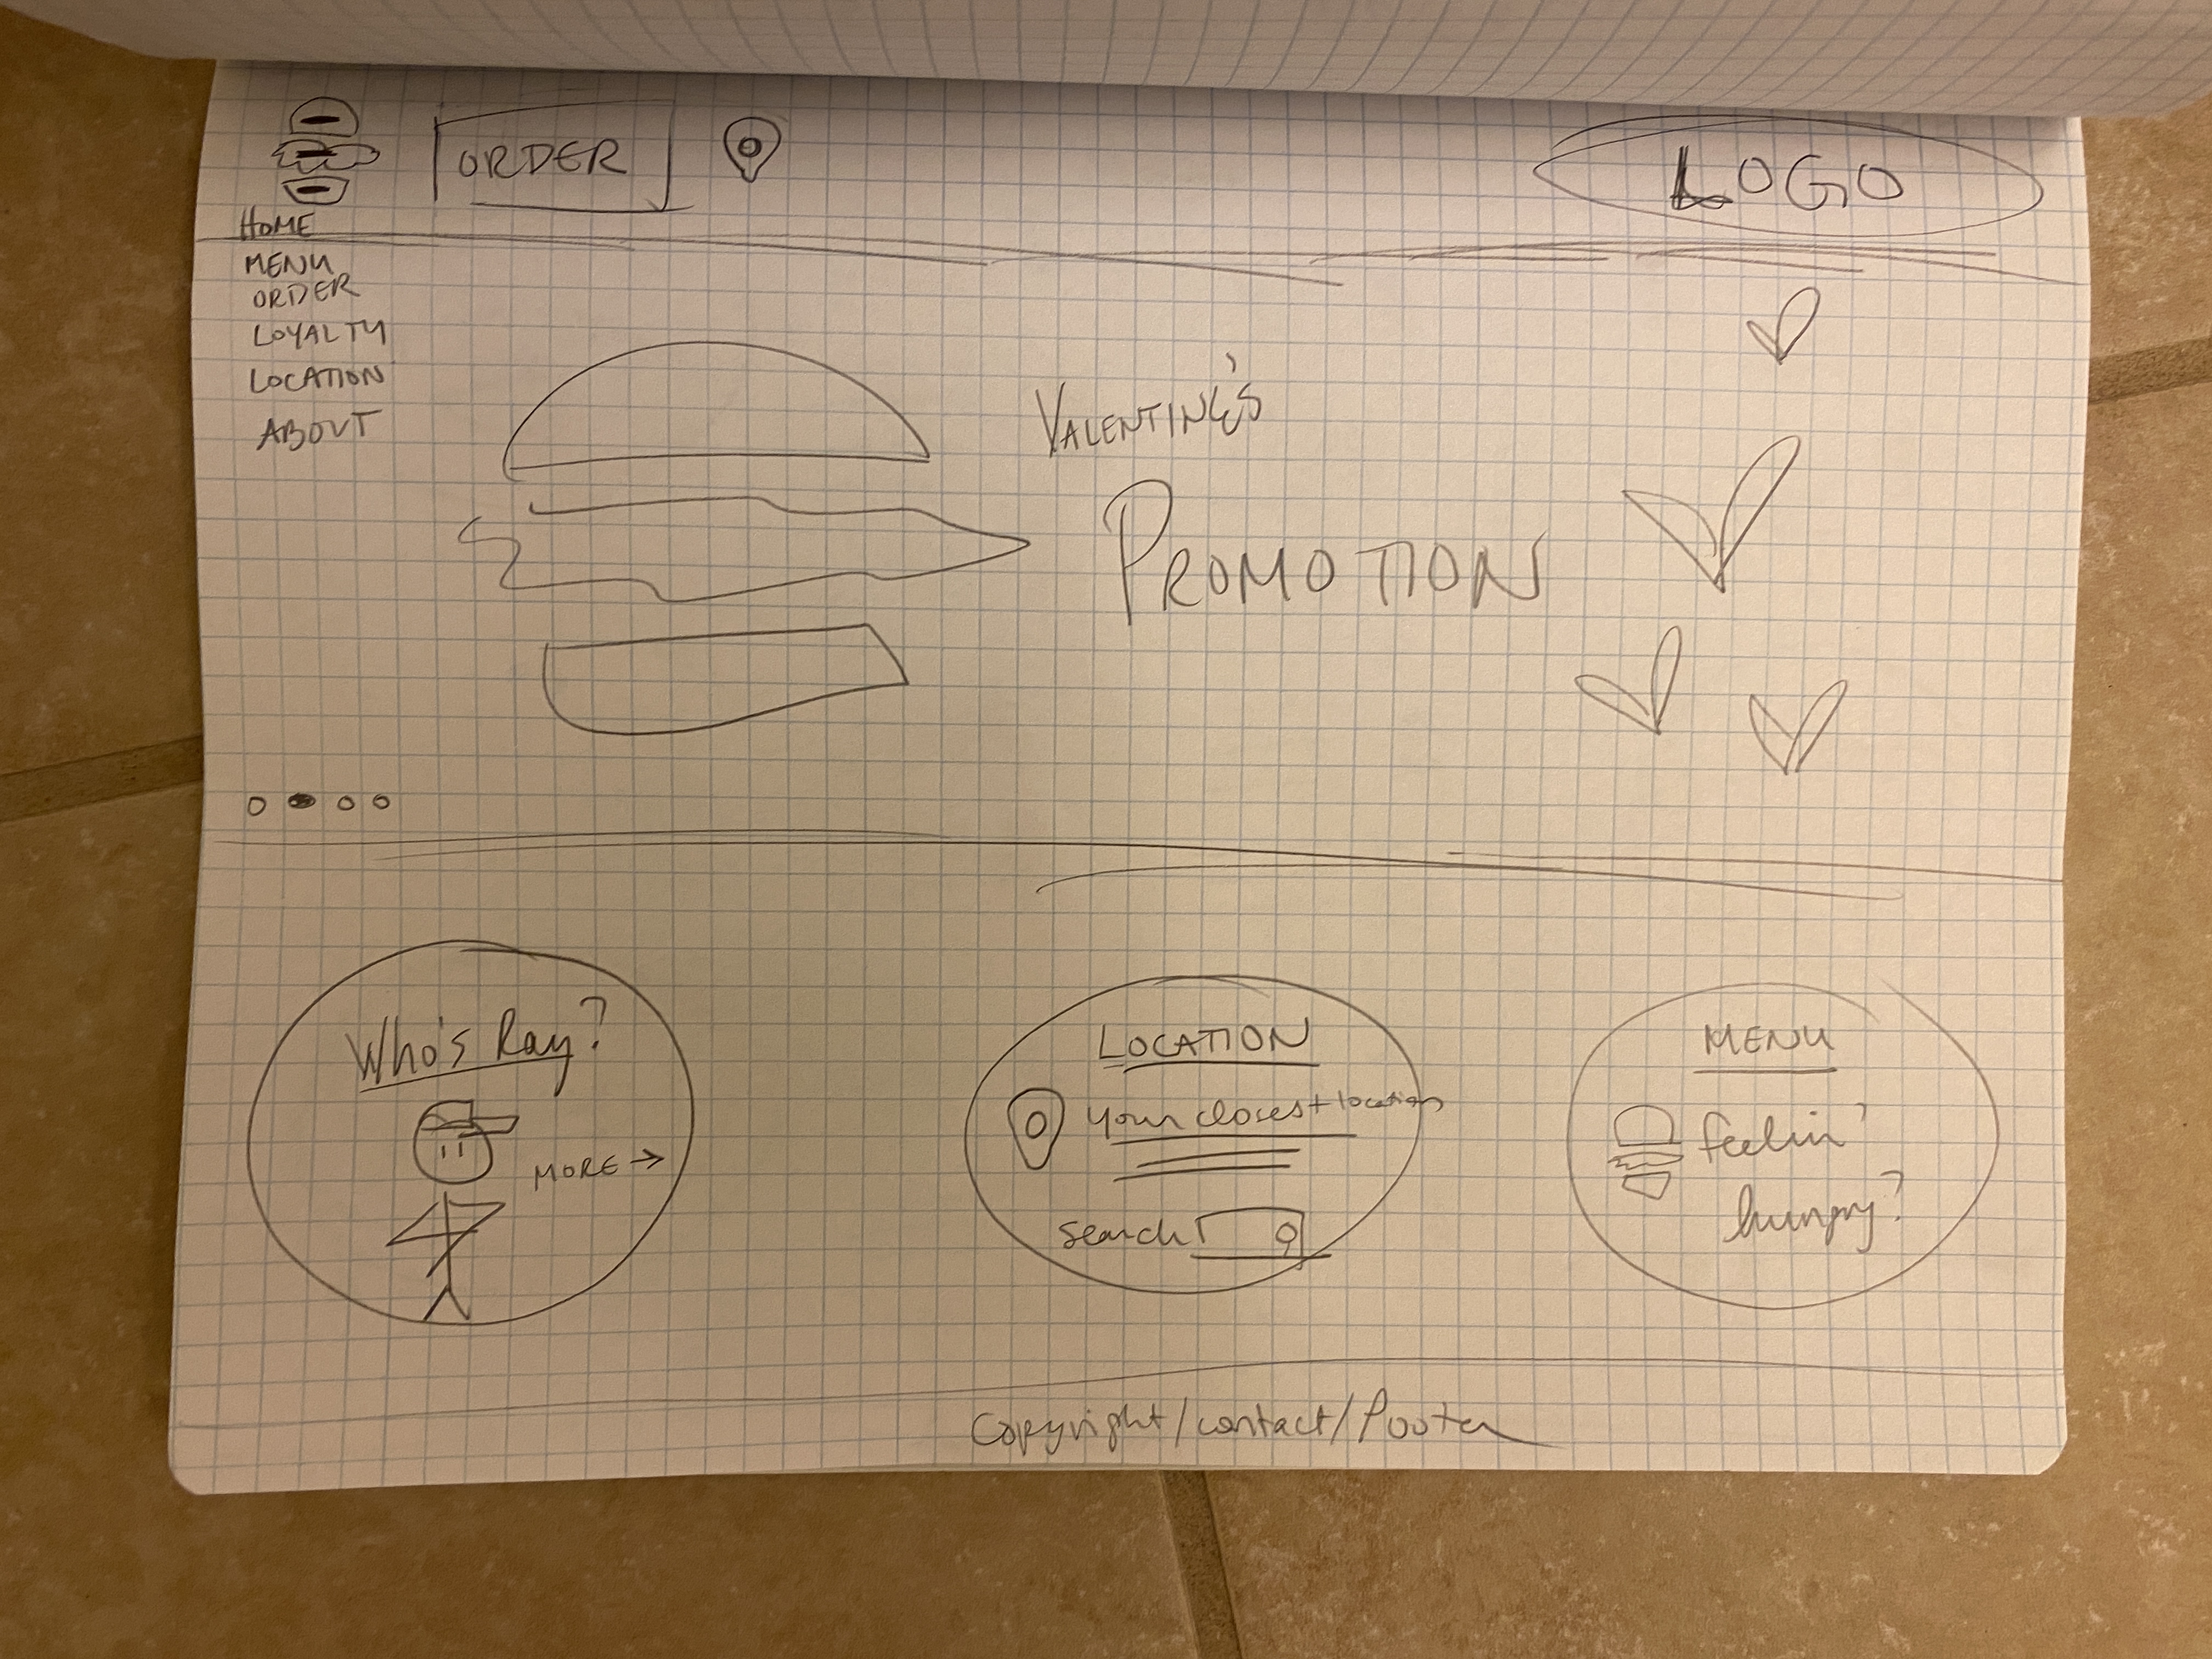 ORDER
LOGO
HOME
MENU
ORDER
LOYALTY
LOCATION
ABOUT
VALENTINE'S
PROMOTION
Who's Ray?
MORE →
LOCATION
your closest location
search
MENU
feelin'
hungry?
Copyright/contact/Footer